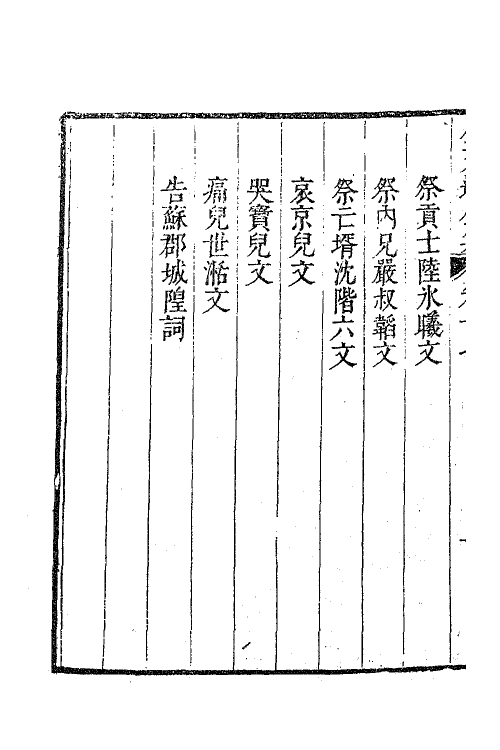 祭貢士陸氷臒文
祭內兄嚴叔韜文
祭亡壻沈階六文
哀京兒文
哭寶兒文
痛兒世湉文
告蘇郡城隍詞